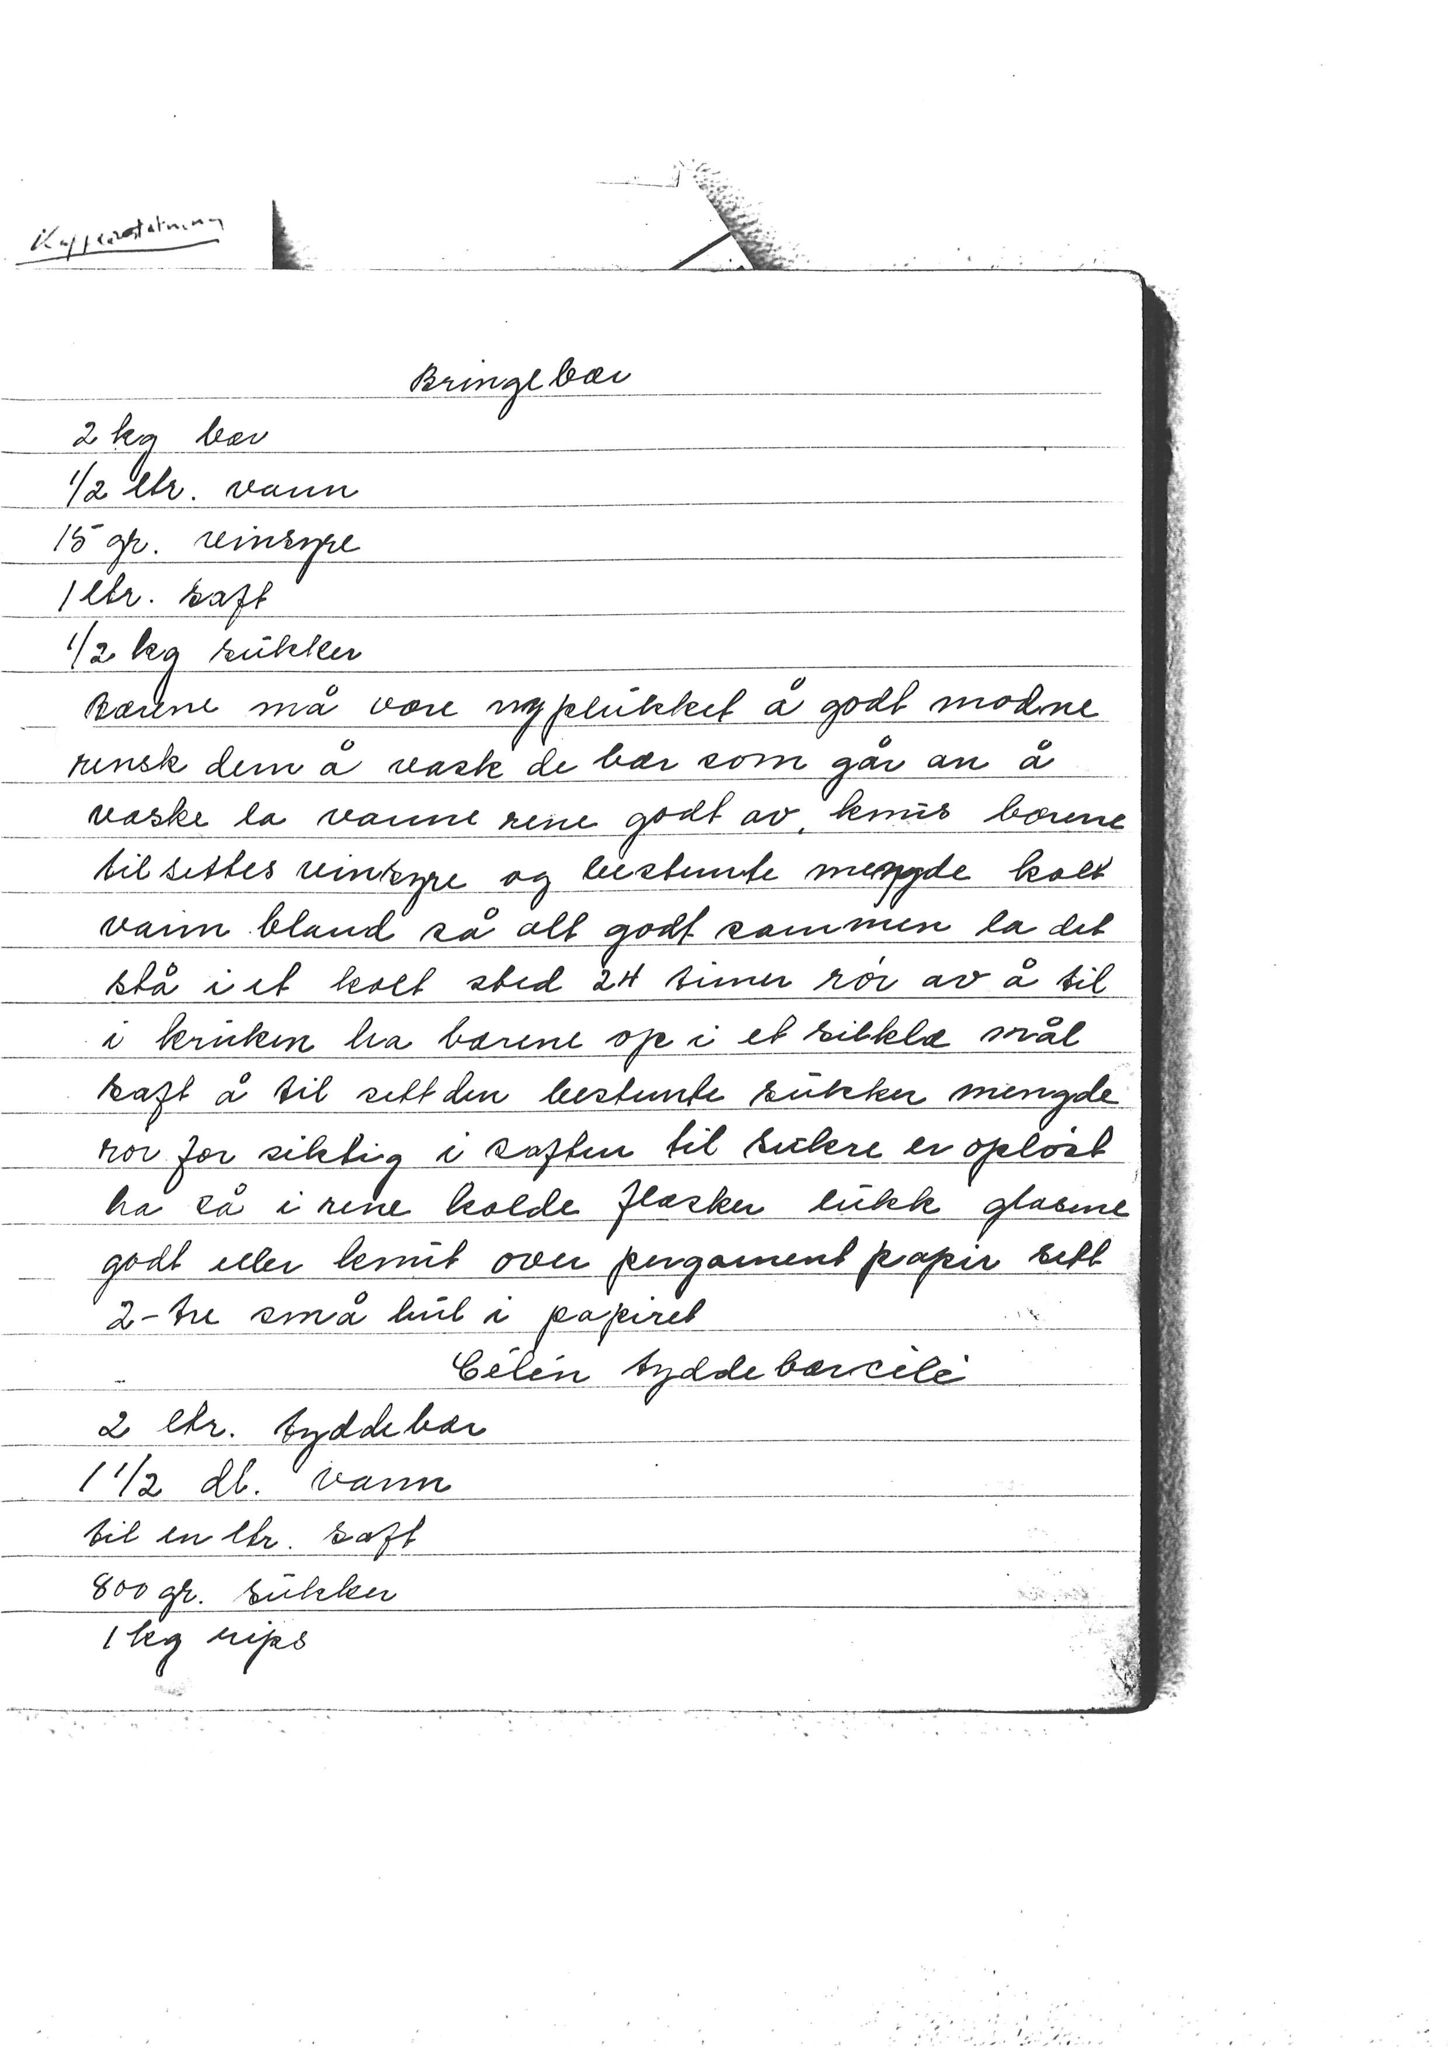 Kaffeerstatning
Bringebær
2 kg bær
1/2 ltr. vann
15 gr. vinsyre
1 ltr. saft
1/2 kg sukker
Bærene må være nyplukket å godt modne
rensk dem å vask de bær som går an å
vaske la vanne rene godt av, knus bærene
til settes vinsyre og bestemte mengde kolt
vann bland så alt godt sammen la det
stå i et kolt sted 24 timer rør av å til
i kruken ha bærene op i et silklæ mål
saft å til sett den bestemte sukker mengde
rør for siktig i saften til sukre er opløst
ha så i rene kolde flasker lukk glasene
godt eller knut over pergament papir sett
2-tre små hul i papiret
Célén tyddebærcélé
2 ltr. tyddebær
1 1/2 dl. vann
til en ltr. saft
800 gr. sukker
1 kg rips